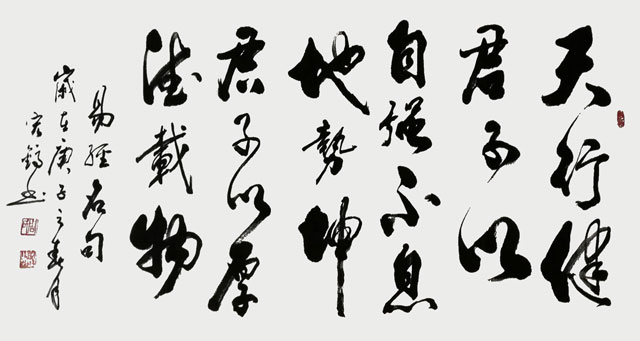 天行健
君子以
自强不息
地势坤
君子以厚
德載物
易經名句
歲在庚子之春月